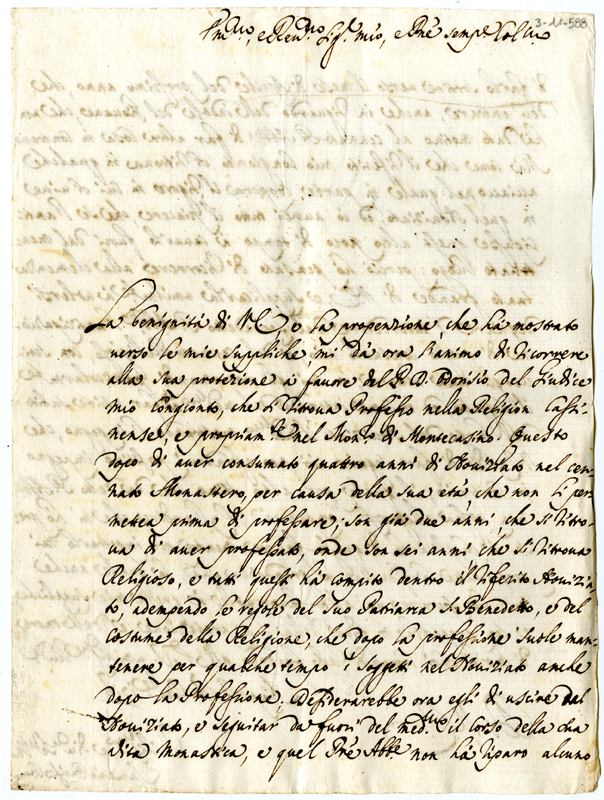 3-11-588
Ill.mo, e Rev.mo Sig.r mio, e Pne semp.e Col.mo
La benignità di VE, e la propenzione, che hà mostrato
verso le mie suppliche mi dà ora l'animo di ricorrere
alla sua protezione à favore del P. D. Dorisio del Giudice
mio Congionto, che si ritrova Professo nella Religion Cassi-
nense, e propriam.te nel Mon.ro di Montecasino. Questo
dopo di aver consumato quattro anni di Noviziato nel cen-
nato Monastero, per causa della sua età, che non li per
mettea prima di professare; son già due anni, che si ritro-
va di aver professato, onde son sei anni che si ritrova
Religioso, e tutti questi hà compito dentro il riferito Novizia-
to, adempendo le regole del suo Patriarca S. Benedetto, e del
costume della Religione, che dopo la professione suole man-
tenere per qualche tempo i soggetti nel Noviziato anche
dopo la Professione. Desiderarebbe ora egli di uscire dal
Noviziato, e seguitar da fuori del med.mo il corso della sua
vita monastica, e quel Pre Abbe non hà riparo alcuno